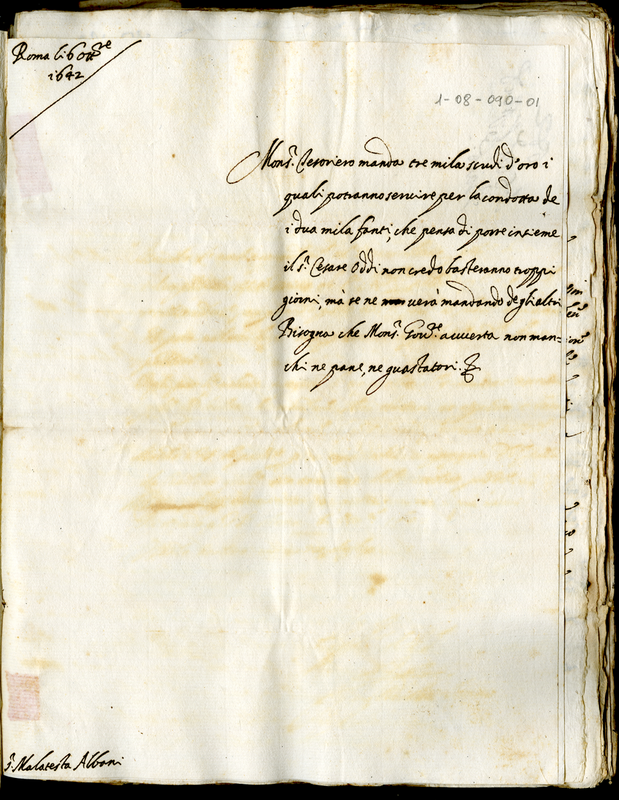 Roma li 6 Ott.re
1642
1-08-090-01
Mons.r Tesoriero manda tre mila scudi d'oro i
quali potranno servire per la condotta de
i dua mila fanti, che pensa di porre insieme
il s.r Cesare Oddi non credo basteranno troppi
giorni, mà se ne verà mandando degli altri
Bisogna che Mons.r Gov.re avverta non man=
chi ne pane, ne guastatori.
s.r Malatesta Albani